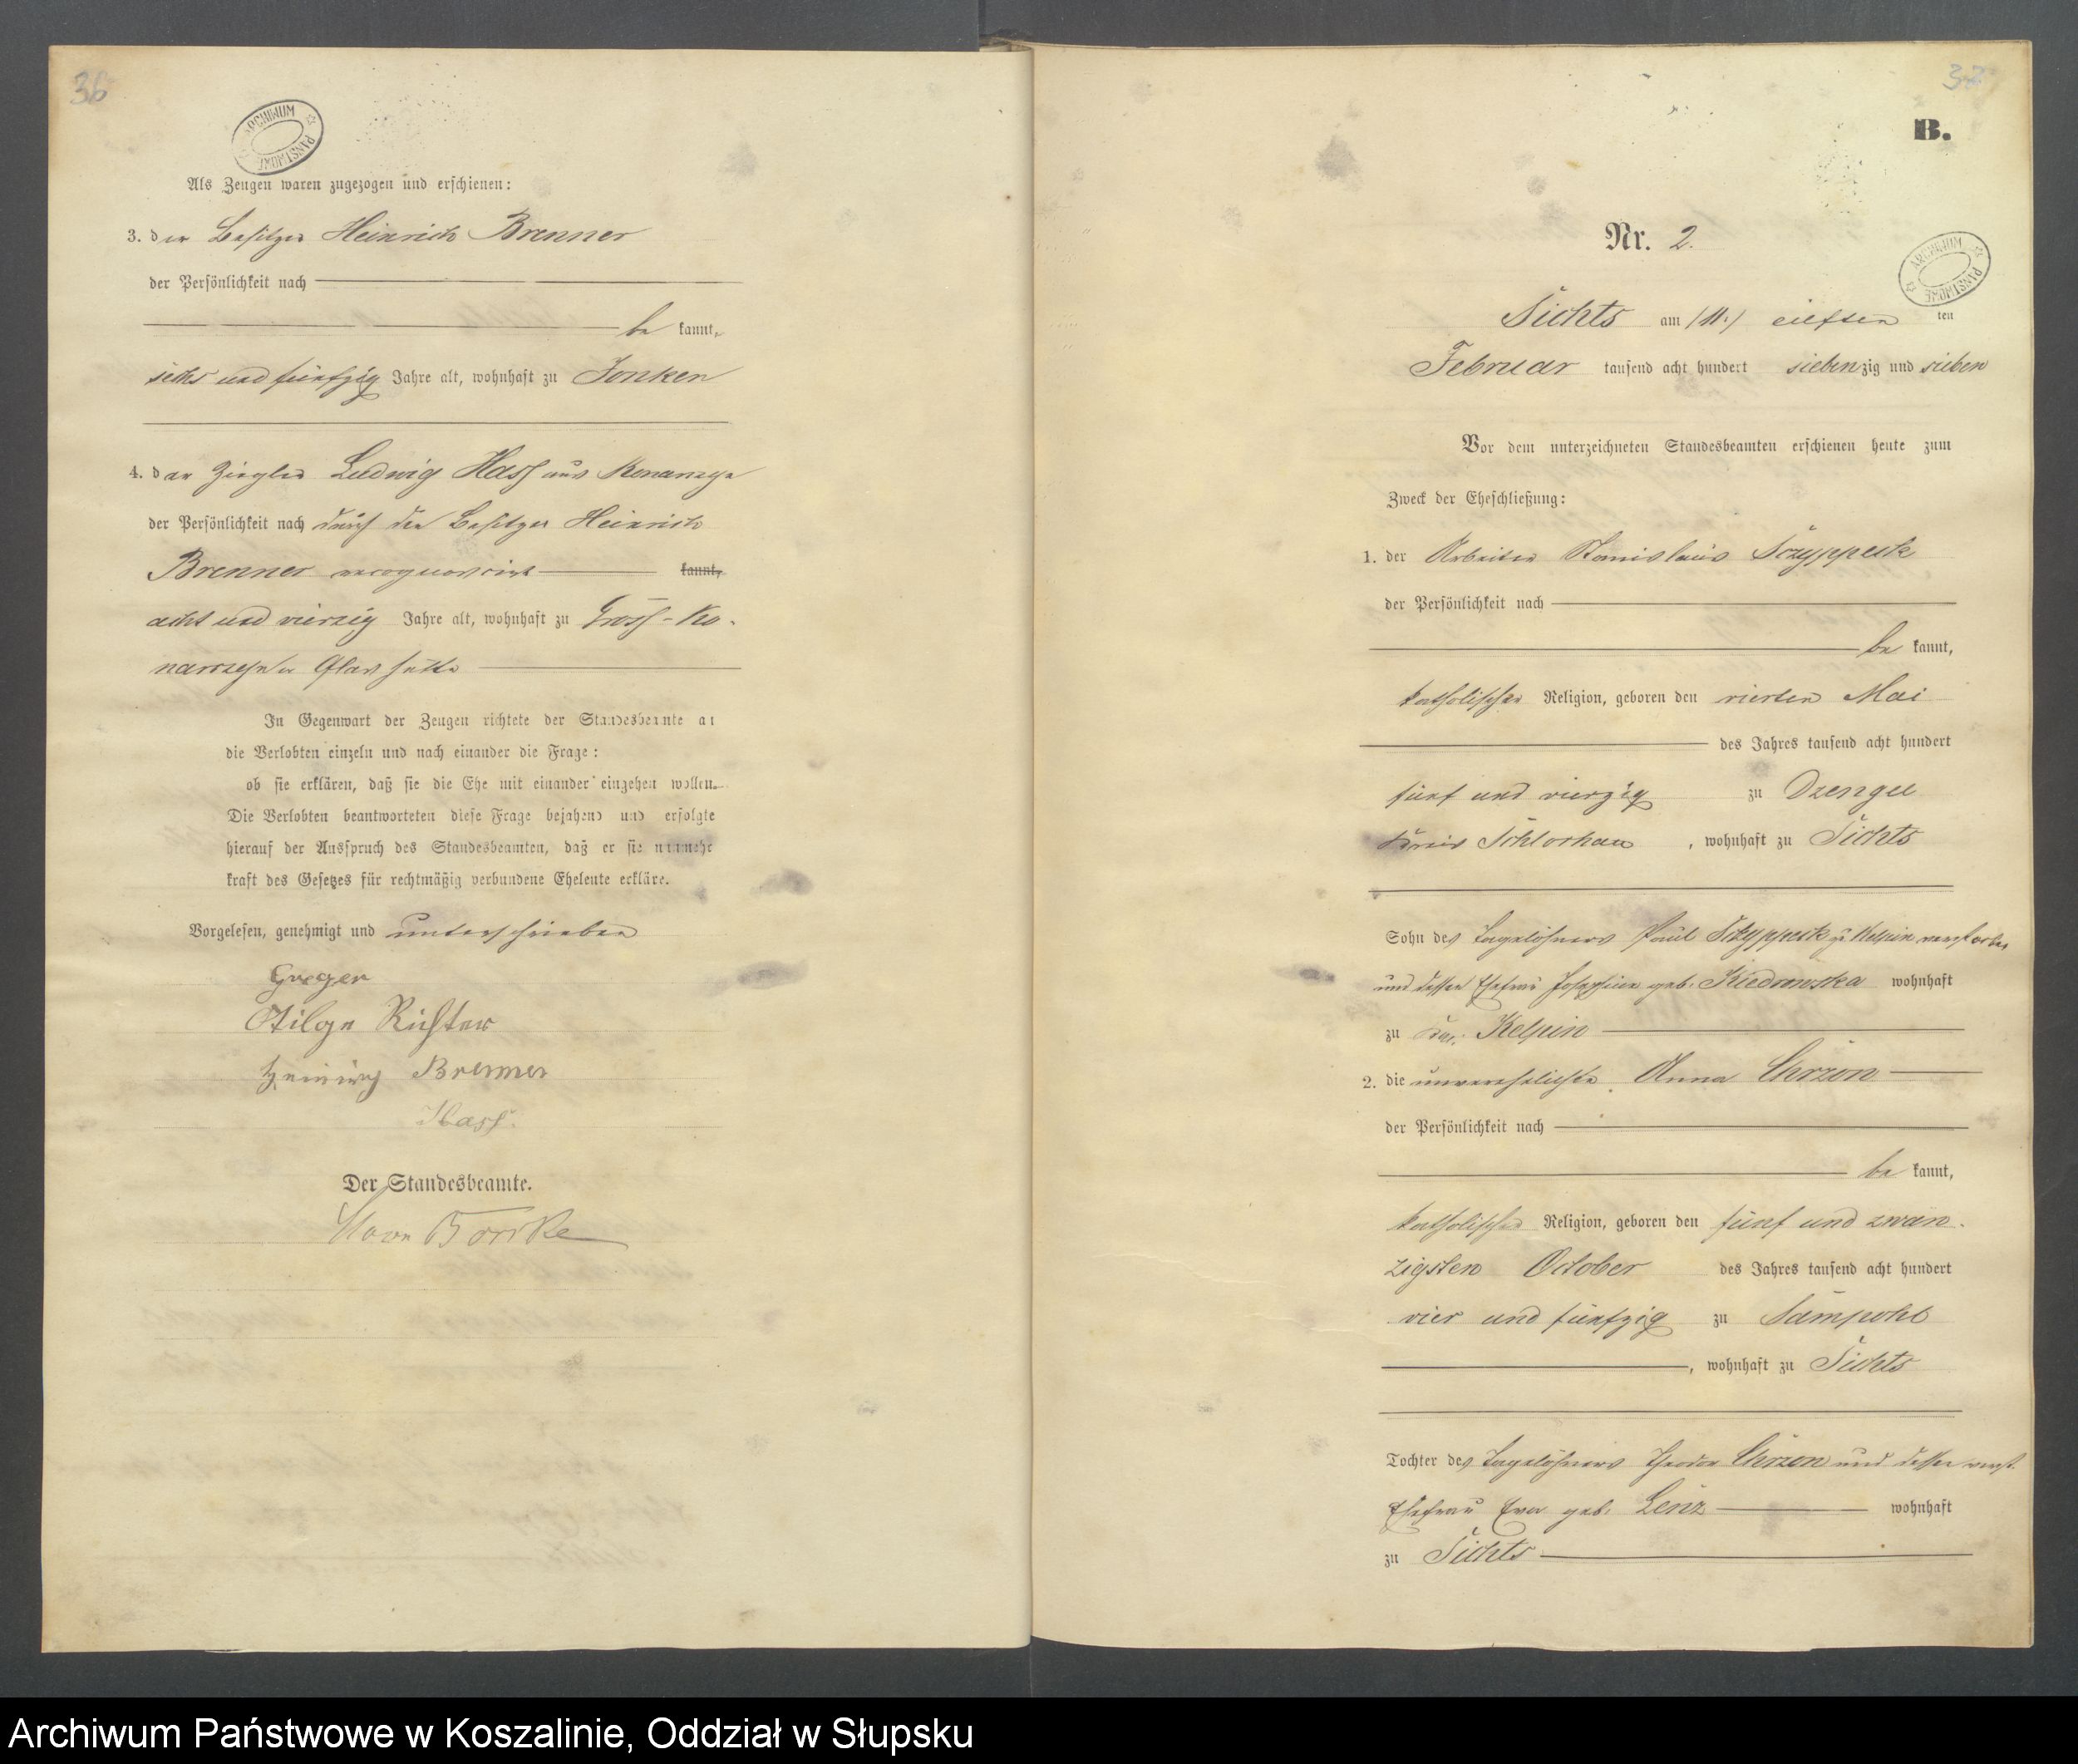 36
ARCHIWUM PAŃSTWOWE
Als Zeugen waren zugezogen und erschienen:
3. der Besitzer Heinrich Brenner
der Persönlichkeit nach
be kannt,
sechs und fünfzig Jahre alt, wohnhaft zu Jonken
4. der Ziegler Ludwig Hass aus
der Persönlichkeit nach durch den Besitzer Heinrich
Brenner recognoscirt kannt,
acht und vierzig Jahre alt, wohnhaft zu Gross-Ko-
narczyner Glashütte
In Gegenwart der Zeugen richtete der Standesbeamte an
die Verlobten einzeln und nach einander die Frage:
ob sie erklären, daß sie die Ehe mit einander eingehen wollen.
Die Verlobten beantworteten diese Frage bejahend und erfolgte
hierauf der Ausspruch des Standesbeamten, daß er sie nunmehr
kraft des Gesetzes für rechtmäßig verbundene Eheleute erkläre.
Vorgelesen, genehmigt und unterschrieben
Greger
Richter
Brenner
Hass.
Der Standesbeamte.
37
B.
Nr. 2.
ARCHIWUM PAŃSTWOWE
Sichts am /11./ eilften ten
Februar tausend acht hundert siebenzig und sieben
Vor dem unterzeichneten Standesbeamten erschienen heute zum
Zweck der Eheschließung:
1. der Arbeiter Stanislaus Sczyppeck
der Persönlichkeit nach
be kannt,
katholischer Religion, geboren den vierten Mai
des Jahres tausend acht hundert
fünf und vierzig zu Dzengel
Kreis Schlochau, wohnhaft zu Sichts
Sohn des Tagelöhners Paul Sczyppeck zu Kelpin verstorben
und dessen Ehefrau Josephine geb. Kiedrowska wohnhaft
zu Kelpin
2. die unverehelichte Anna Chrzon
der Persönlichkeit nach
be kannt,
katholischer Religion, geboren den fünf und zwan-
zigsten October des Jahres tausend acht hundert
vier und fünfzig zu Sampohl
, wohnhaft zu Sichts
Tochter des Tagelöhners Theodor Chrzon und dessen verst.
Ehefrau Eva geb. Lenz wohnhaft
zu Sichts
Archiwum Państwowe w Koszalinie, Oddział w Słupsku